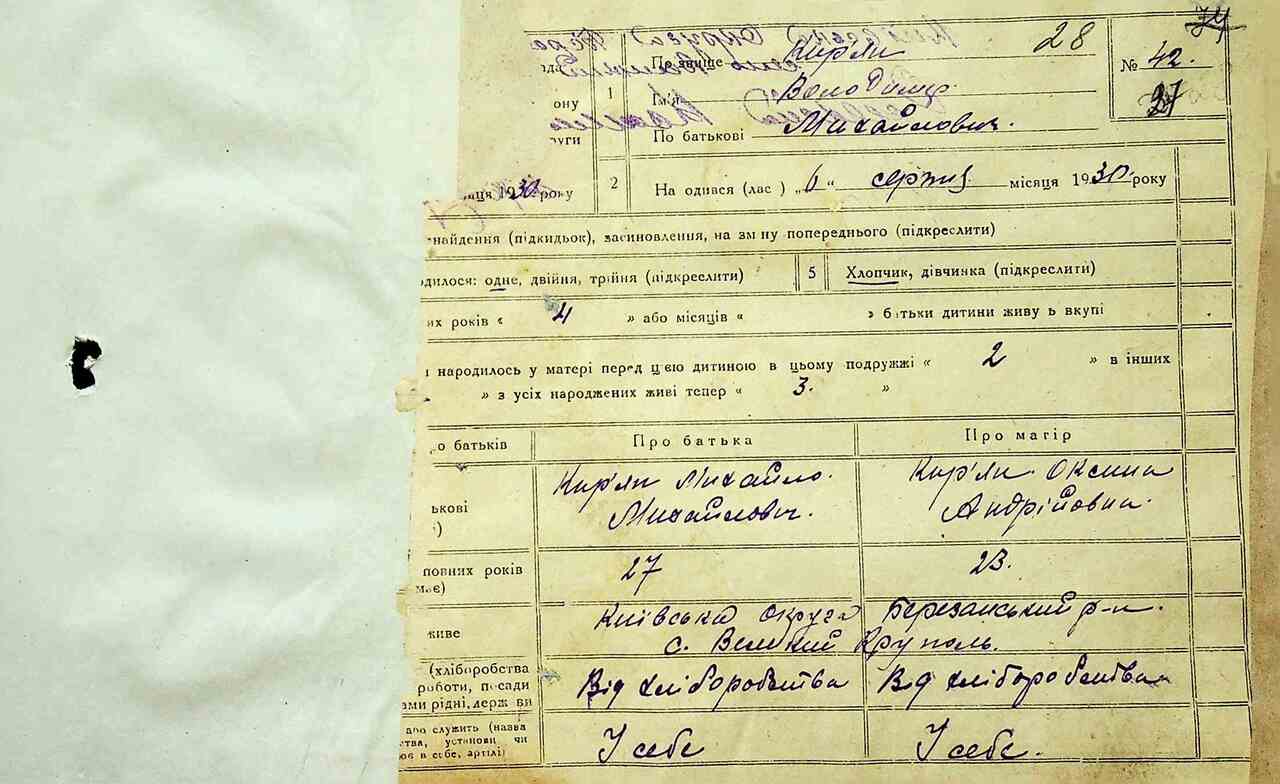 74
Прізвище Кир'ян 28
№ 42.
1 Ім'я Володимир
27
ону
По батькові Михайлович.
руги
2 На одився (лас ) „6“ серпня місяця 1930 року
яця 1930 року
найдення (підкидьок), засиновлення, на зм ну попереднього (підкреслити)
дилося: одне, двійня, трійня (підкреслити) 5 Хлопчик, дівчинка (підкреслити)
их років « 4 » або місяців « » батьки дитини живу ь вкупі
и народилось у матері перед цією дитиною в цьому подружжі « 2 » в інших
» з усіх народжених живі тепер « 3. »
о батьків Про батька Про матір
Кир'ян Михайло Кир'ян Оксана
ькові Михайлович. Андріївна.
)
повних років 27 23.
має)
живе Київська округа Березанський р-н.
с. Великий Круполь.
(хліборобства
роботи, посади Від хліборобства Від хліборобства
ами рідні, держ ви
або служить (назва
тва, установи чи У себе У себе.
ює в себе, артілі)